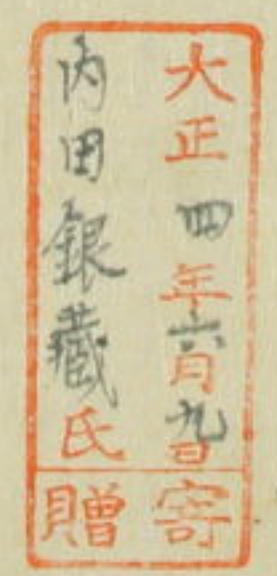 大正四年六月九日
内田銀藏氏
寄贈